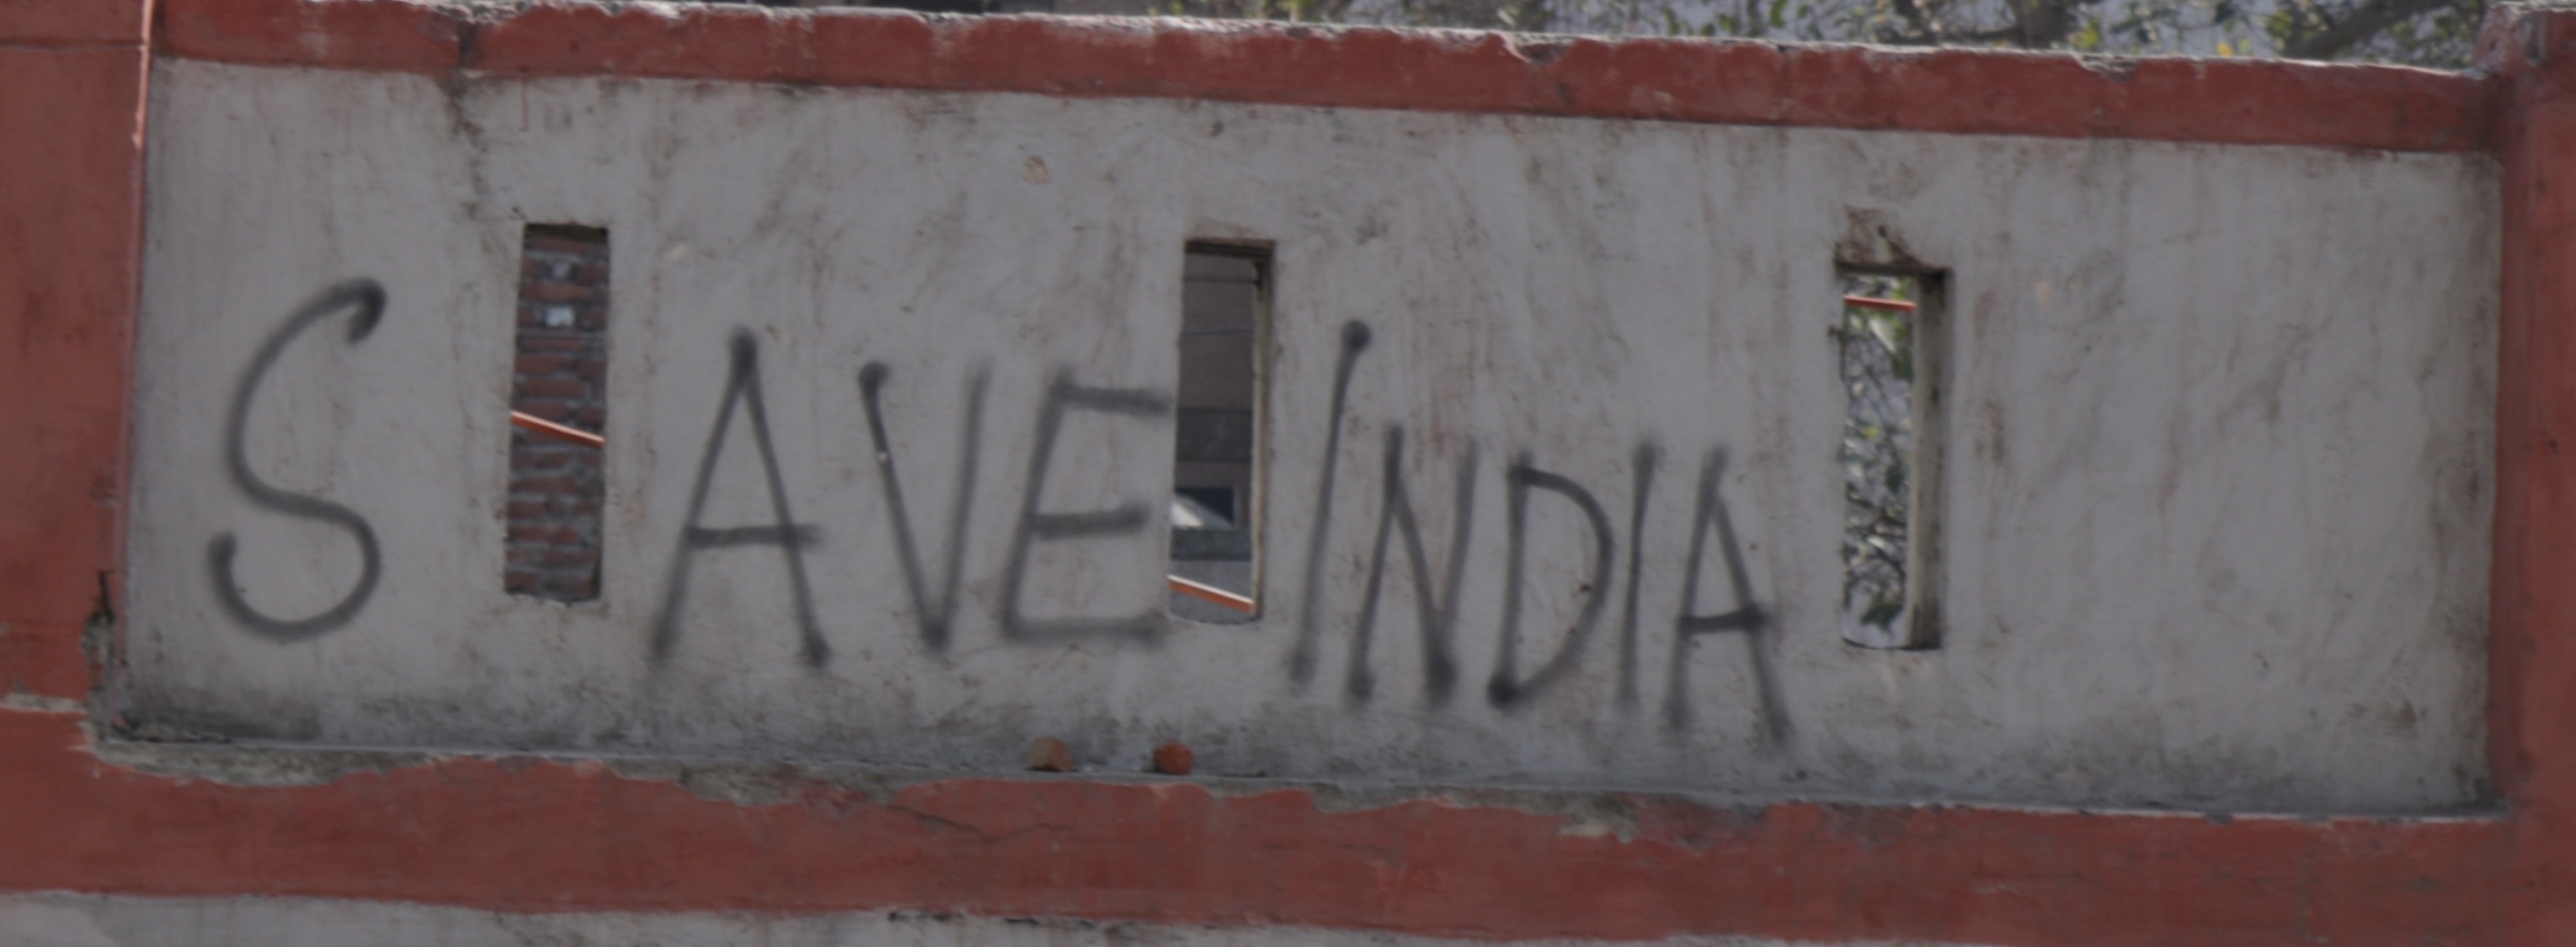 SAVE INDIA